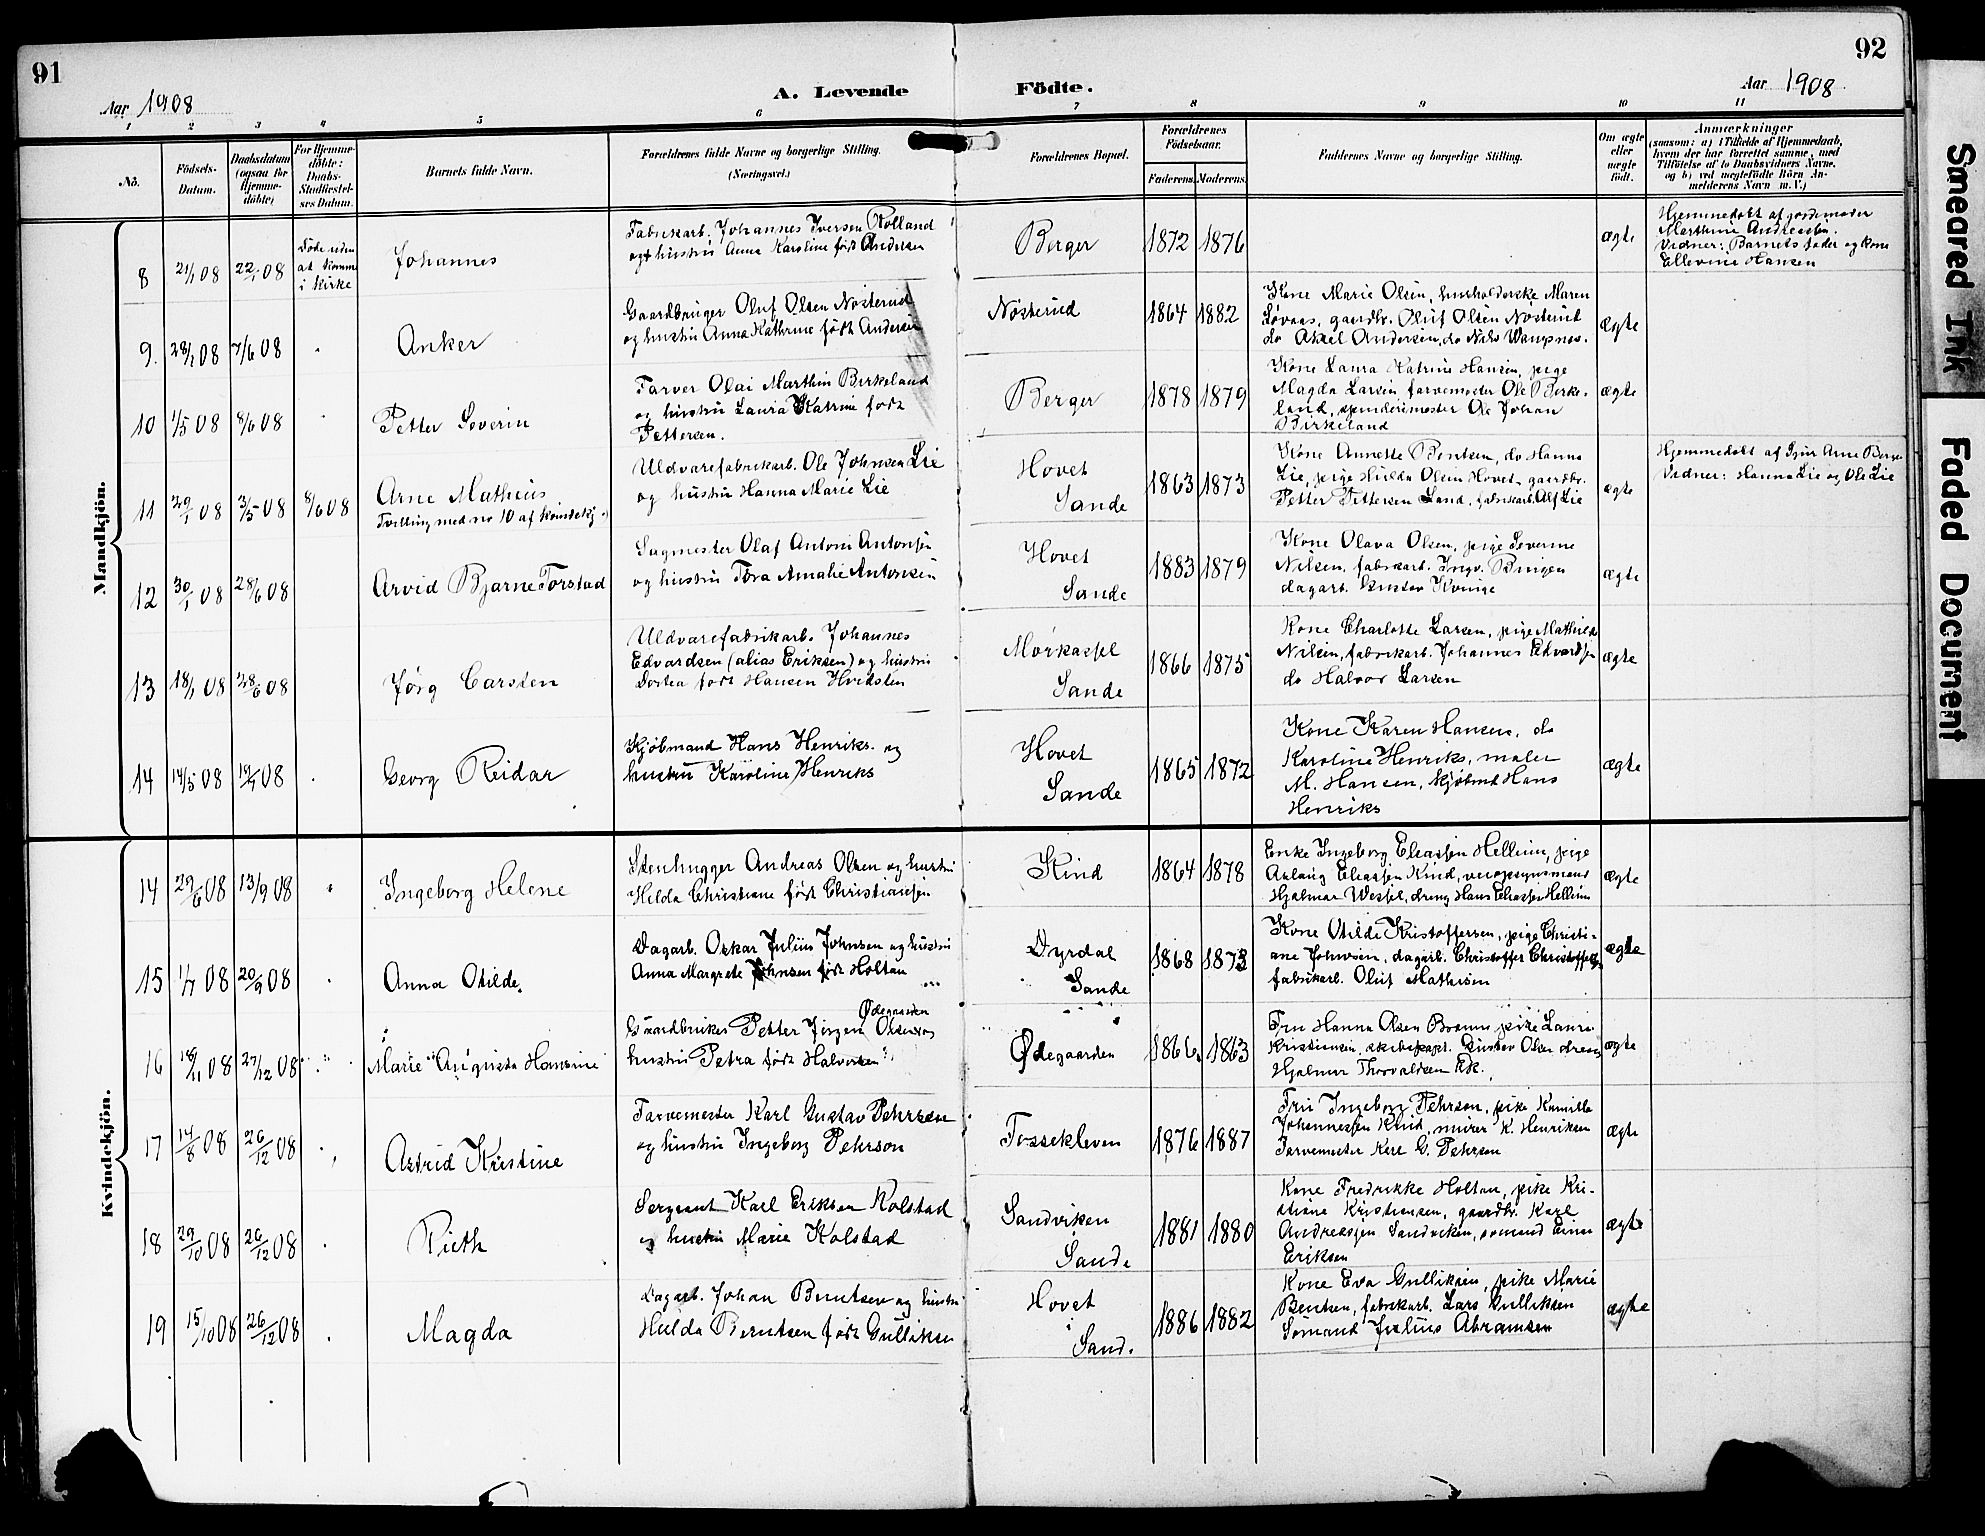 91
92
Aar 1908
A. Levende Födte.
Aar 1908
1 2 3 4 5 6 7 8 9 10 11
No.
Födsels-
Datum.
Daabsdatum
(ogsaa for
Hjemme-
döbte)
For Hjemme-
döbte:
Daabs-
Stadfæstel-
ses Datum.
Barnets fulde Navn.
Forældrenes fulde Navne og borgerlige Stilling.
(Næringsvei.)
Forældrenes Bopæl.
Forældrenes
Födselsaar.
Faderens. Moderens.
Faddernes Navne og borgerlige Stilling.
Om ægte
eller
uægte
födt.
Anmærkninger
(saasom: a) i Tilfælde af Hjemmedaab,
hvem der har forrettet samme, med
Tilföielse af to Daabsvidners Navne,
og b) ved uægtefödte Börn An-
melderens Navn m. V.)
Mandkjön.
8 21/1 08 22/1 08
Døde uden
at komme
i kirke
Johannes
Fabrikarb. Johannes Iversen Rolland
og hustru Anna Karoline født Andersen
Berger
1872 1876
ægte
Hjemmedøbt af jordemoder
Marthine Andreassen.
Vidner: Barnets fader og kone
Ellevine Hansen
9. 28/1 08 7/6 08
Anker
Gaardbruger Oluf Olsen Nøsterud
og hustru Anna Kathrine født Andersen
Nøsterud
1864 1882
Kone Marie Olsen, husholderske Maren
Løvaas, gaardbr. Oluf Olsen Nøsterud
do Aksel Andersen, do Nils
ægte
10 1/5 08 8/6 08
Petter Severin
Farver Olai Marthin Birkeland
og hustru Laura Katrine født
Pettersen.
Berger
1878 1879
Kone Laura Katrine Hansen, pige
Magda Larsen farvemester Ole Birke-
land, spinderimester Ole Johan
Birkeland
ægte
11 29/1 08 3/5 08 8/6 08
Arne Matheus
Tvilling med no 10 af kvindekj.
Uldvarefabrikarb. Ole Johnsen Lie
og hustru Hanna Marie Lie
Hovet
Sande
1863 1873
Kone Annette Bentsen, do Hanna
Lie, pige Hulda Olsen Hovet, gaardbr.
Petter Pettersen Sand, fabrikarb. Alf Lie
ægte
Hjemmedøbt af Arne Berge
Vidner: Hanna Lie og Ole Lie
12 30/1 08 28/6 08
Arvid Bjarne Torstad
Sagmester Olaf Antoni Antonsen
og hustru Tora Amalie Antonsen
Hovet
Sande
1883 1879
Kone Olava Olsen, pige Severine
Nilsen, fabrikarb. Ingv. Bingen
dagarb. Gustav Kvinge
ægte
13 18/1 08 28/6 08
Jørg Carsten
Uldvarefabrikarb. Johannes
Edvardsen (alias Eriksen) og hustru
Dortea født Hansen Hvidsten
Mørkassel
Sande
1866 1875
Kone Charlotte Larsen, pige Mathilde
Nilsen, fabrikarb. Johannes Edvardsen
do Halvor Larsen
ægte
14 14/5 08 19/7 08
Georg Reidar
Kjøbmand Hans Henriks. og
hustru Karoline Henriks
Hovet
Sande
1865 1872
Kone Karen Hansen, do
Karoline Henriks, maler
M. Hansen, kjøbmd Hans
Henriks
ægte
Kvindekjön.
14 29/6 08 13/9 08
Ingeborg Helene
Stenhugger Andreas Olsen og hustru
Helda Christiane født Christiansen
Kind
1864 1878
Enke Ingeborg Eliassen Hellum, pige
Aslaug Eliassen Kind, veiopsynsmand
Hjalmar Wessel, dreng Hans Eliassen Hellum
ægte
15 1/7 08 20/9 08
Anna Otilde.
Dagarb. Oskar Julius Johnsen og hustru
Anna Margrete Johnsen født Holtan
Dyrdal
Sande
1868 1873
Kone Otilde Kristoffersen, pige Christi-
ane Johnsen, dagarb. Christoffer Christoffers.
fabrikarb. Oluf Mathisen
ægte
16 18/11 08 27/12 08
Marie Augusta Hansine
Ødegaarden
Gaardbruker Petter Jørgen Olsen og
hustru Petra født Halvorsen
Ødegaarden
1866 1863
Fru Hanna Olsen Broum pike Laura
Kristiansen, skibskapt. Gustav Olsen dreng
Hjalmar Thorvaldsen
ægte
17 14/8 08 26/12 08
Astrid Kristine
Farvemester Karl Gustav Pehrson
og hustru Ingeborg Pehrson
Fossekleven
1876 1887
Fru Ingeborg Pehrson, pike Kamilla
Johannessen Kind, murer K. Henriksen
Farvemester Karl G. Pehrson
ægte
18 29/10 08 26/12 08
Rieth
Sergeant Karl Eriksen Kolstad
og hustru Marie Kolstad
Sandviken
Sande
1881 1880
Kone Fredrikke Holtan, pike Kri-
stiane Kristiansen, gaardbr. Karl
Andreassen Sandviken, sømand Einar
Eriksen
ægte
19 15/10 08 26/12 08
Magda
Dagarb. Johan Berntsen og hustru
Hulda Berntsen født Gulliksen
Hovet
Sand.
1886 1882
Kone Eva Gulliksen, pike Marie
Bentsen, fabrikarb. Lars Gulliksen
Sømand Julius Abramsen
ægte
Smeared Ink
Faded Document